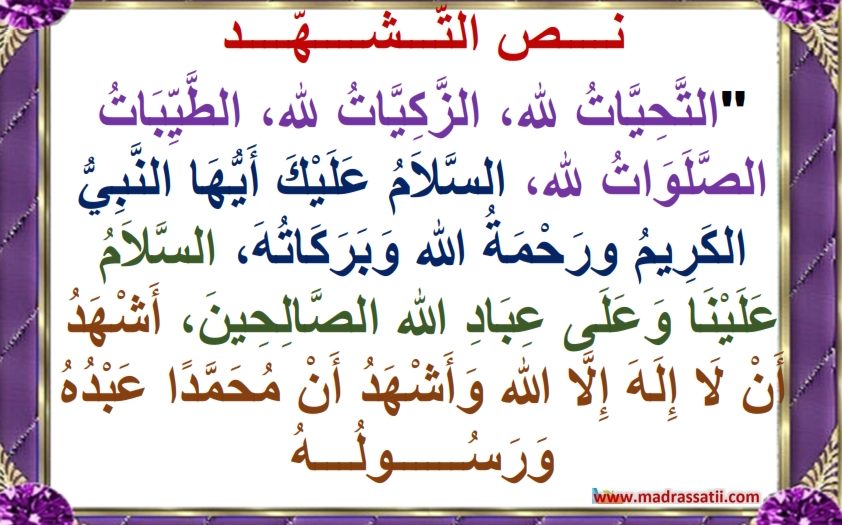 نـــص التّـــشـــــهّـــــد
"التَّحِيَّاتُ لله، الزَّكِيَّاتُ لله، الطَّيِّبَاتُ
الصَّلَوَاتُ لله، السَّلاَمُ عَلَيْكَ أَيُّهَا النَّبِيُّ
الكَرِيمُ ورَحْمَةُ الله وَبَرَكَاتُهَ، السَّلاَمُ
عَلَيْنَا وَعَلَى عِبَادِ الله الصَّالِحِينَ، أَشْهَدُ
أَنْ لَا إِلَهَ إِلَّا الله وَأَشْهَدُ أَنْ مُحَمَّدًا عَبْدُهُ
وَرَسُــــولُـــهُ
www.madrassatii.com